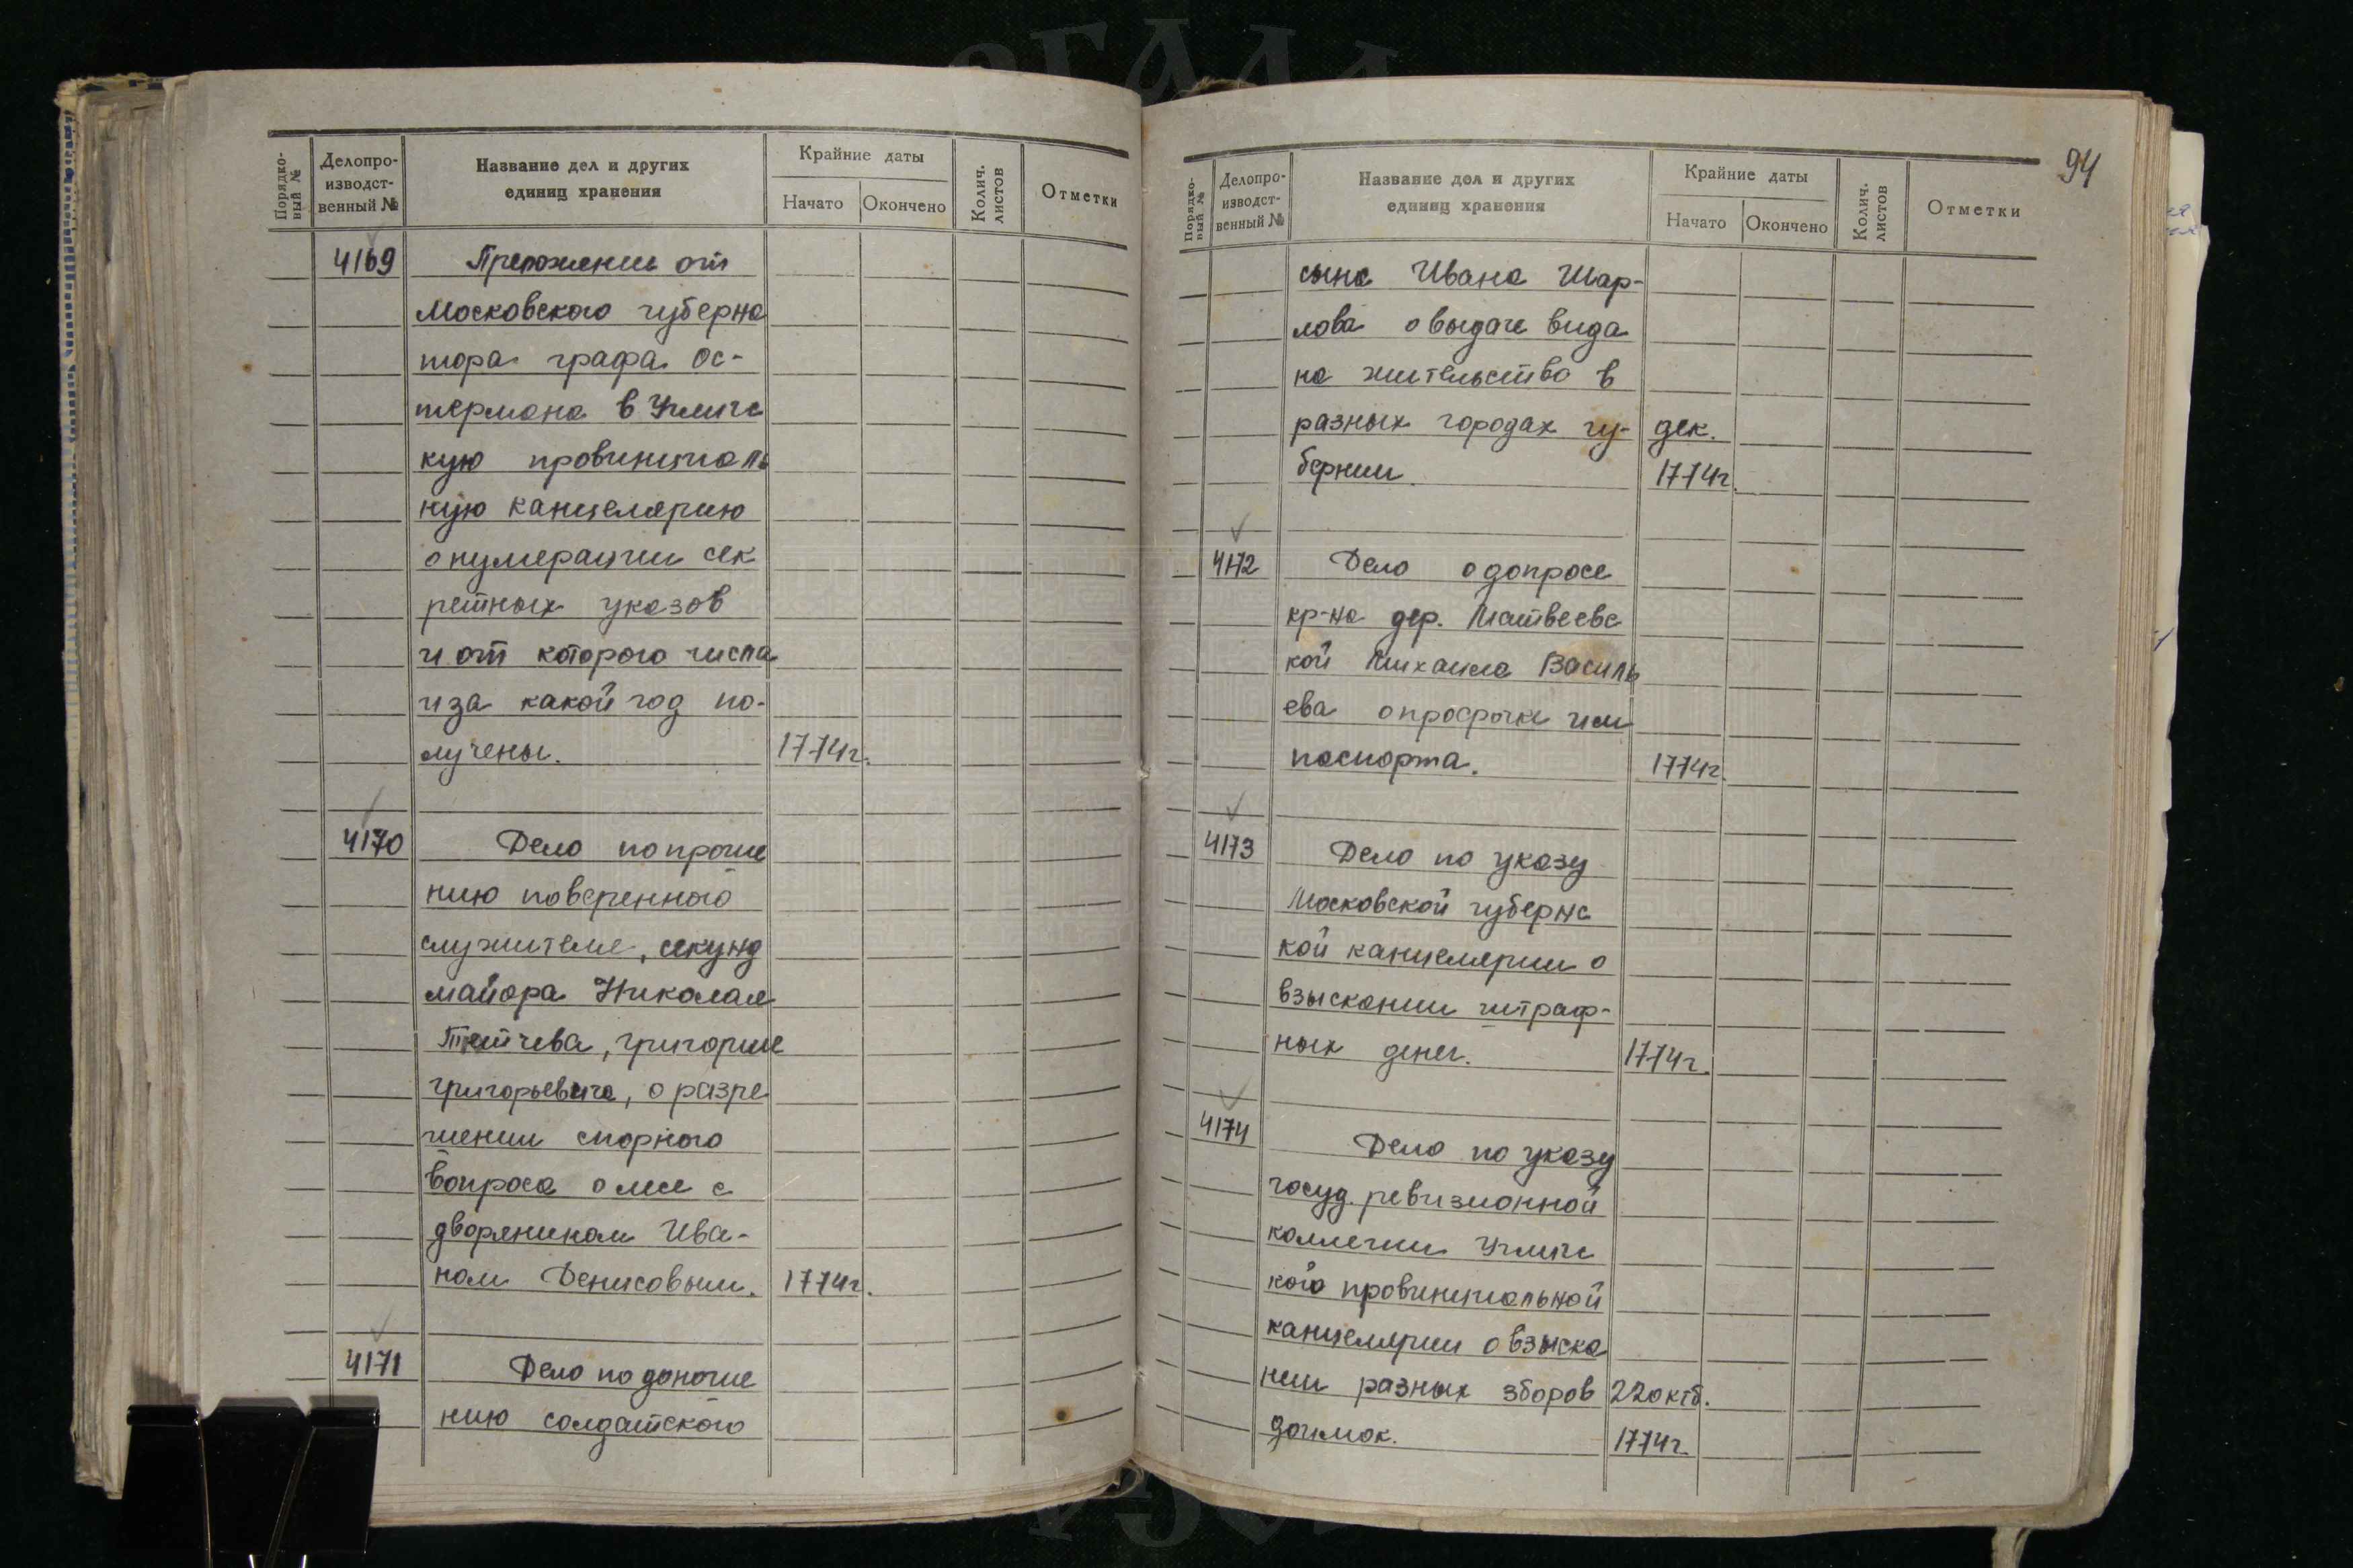 Порядко-
вый №
Делопро-
изводст-
венный №
Название дел и других
единиц хранения
Крайние даты
Начато
Окончено
Колич.
листов
Отметки
4169
Преложение от
Московского губерна
тора графа Ос-
термана в Углитс
кую провинциаль
ную канцелярию
о нумерации сек
ретных указов
и от которого числа
и за какой год по-
лучены. 1774г.
4170
Дело по проше
нию поверенного
служителя, секунд
майора Николая
Тютчева, Григория
Григорьевича, о разре
шении спорного
вопроса о лесе с
дворянином Ива-
ном Денисовым. 1774г.
4171
Дело по доноше
нию солдатского
94
Порядко-
вый №
Делопро-
изводст-
венный №
Название дел и других
единиц хранения
Крайние даты
Начато
Окончено
Колич.
листов
Отметки
сына Ивана Шар-
лова о выдаче вида
на жительство в
разных городах гу- дек.
бернии. 1774г.
4172
Дело о допросе
кр-на дер. Матвеевс
кой Михаила Василь
ева о просрочке им
паспорта. 1774г.
4173
Дело по указу
Московской губернс
кой канцелярии о
взыскании штраф-
ных денег. 1774г.
4174
Дело по указу
госуд. ревизионной
коллегии Углитс
кого провинциальной
канцелярии о взыска
нии разных зборов 22 октб.
доимок. 1774г.